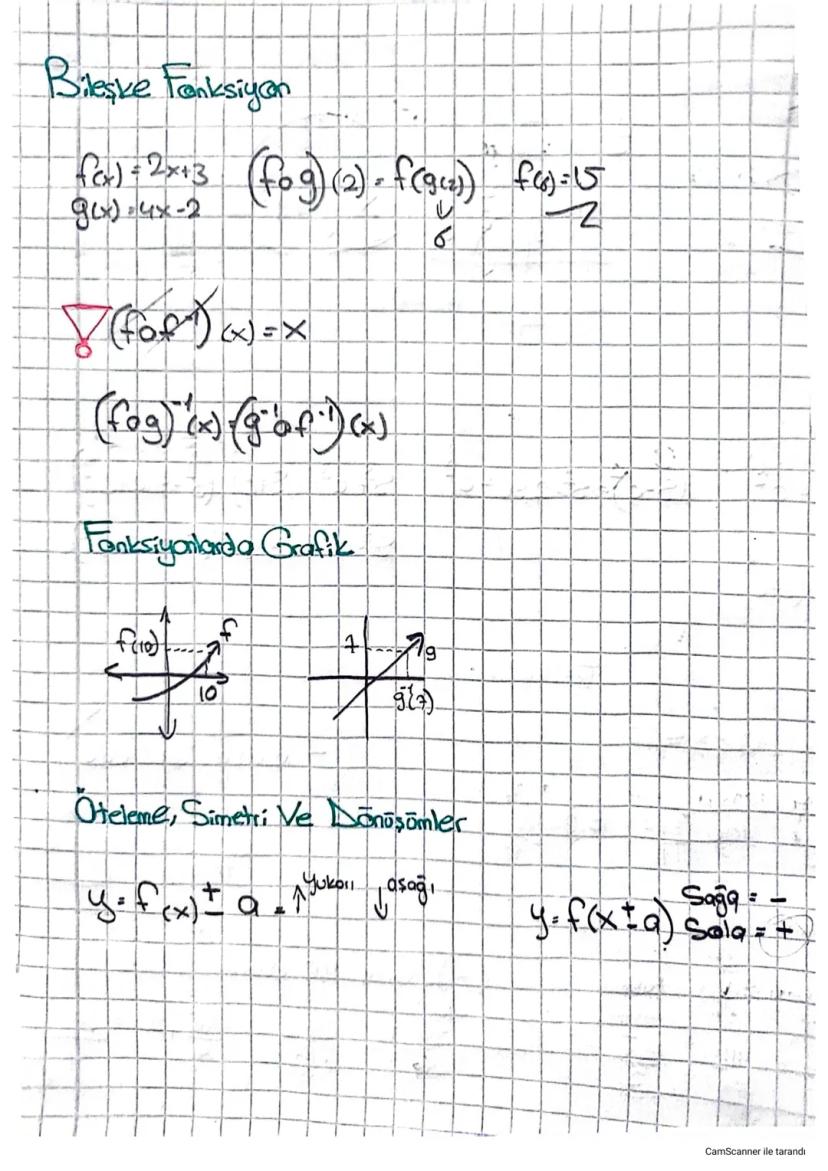 Bileşke Fonksiyon
f(x) = 2x+3 (fog)(2) = f(g(2)) f(6)=15
g(x) = 4x-2
6
(fof⁻¹)(x) = x
(fog)⁻¹(x) = (g⁻¹of⁻¹)(x)
Fonksiyonlarda Grafik
f(10) f 7 g
10 g⁻¹(7)
Öteleme, Simetri Ve Dönüşümler
y = f(x) ± a = ↑ Yukarı ↓ aşağı
y = f(x ± a) Sağa = -
Sola = +
CamScanner ile tarandı